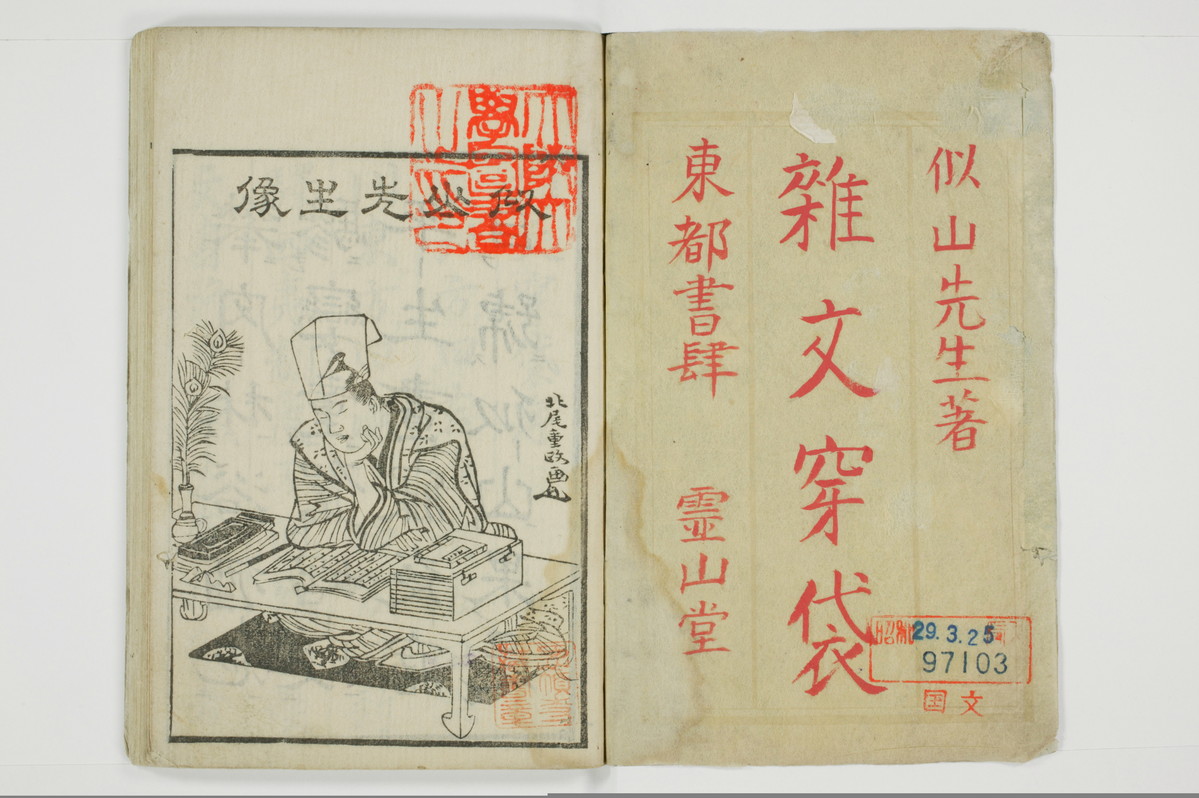 似山先生著
雑文穿袋
東都書肆 霊山堂
昭和 29.3.25
97103
国文
似山先生像
北尾重政画